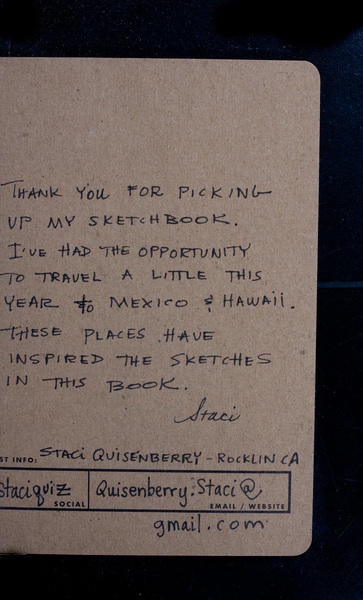 THANK YOU FOR PICKING
UP MY SKETCHBOOK.
I'VE HAD THE OPPORTUNITY
TO TRAVEL A LITTLE THIS
YEAR to MEXICO & HAWAII.
THESE PLACES HAVE
INSPIRED THE SKETCHES
IN THIS BOOK.
Staci
ST INFO: STACI QUISENBERRY - ROCKLIN CA
Staciquiz Quisenberry.Staci@
SOCIAL EMAIL / WEBSITE
gmail.com